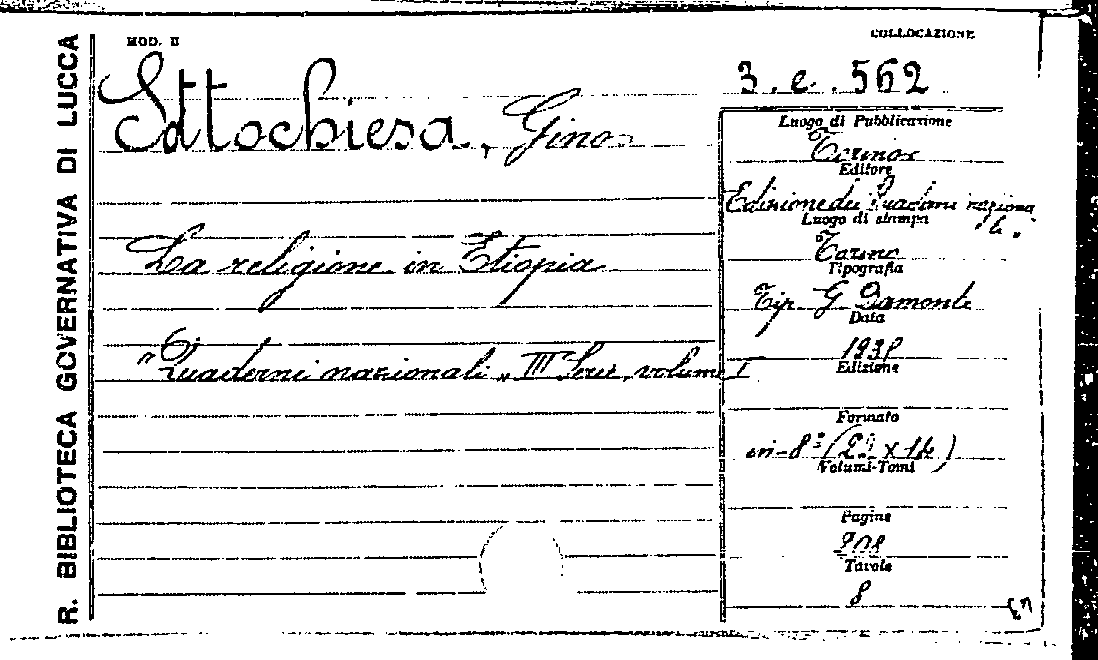 R. BIBLIOTECA GOVERNATIVA DI LUCCA
MOD. II
COLLOCAZIONE
3. e. 562
Sattochiesa, Gino
La religione in Etiopia
"Quaderni nazionali" III Serie, volume I
Luogo di Pubblicazione
Torino
Editore
Edizione dei "Quaderni nazionali"
Luogo di stampa
Torino
Tipografia
Tip. G. Damonte
Data
1938
Edizione
Formato
in-8°
Volumi-Tomi
Pagine
208
Tavole
8